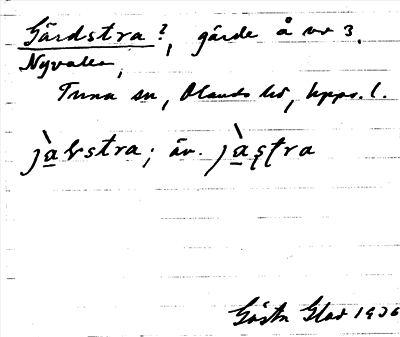 Gärdstra?, gärde å nr 3.
Nyvalla,
Tuna sn, Olands hd, Upps. l.
jàstra; äv. jàs̨t̨ra
Gösta Glad 1936